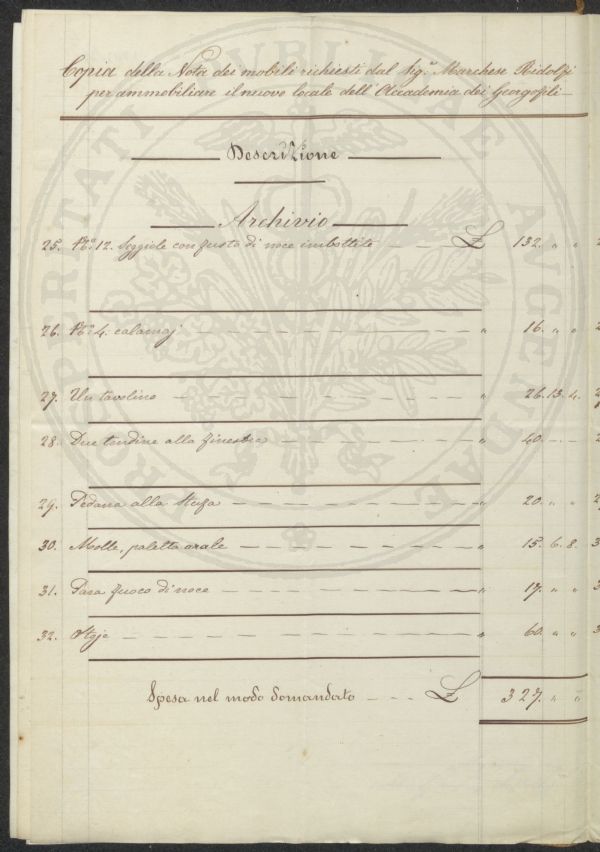 Copia della Nota dei mobili richiesti dal Sig.e Marchese Ridolfi
per ammobiliare il nuovo locale dell'Accademia dei Georgofili
Descrizione
Archivio
25. No. 12. Seggiole con fusto di noce imbottite £ 132. " "
26. No. 4. calamaj " 16. " "
27. Un tavolino " 26. 13. 4.
28. Due tendine alla finestra " 40. – –
29. Pedana alla Stufa " 20. " "
30. Molle, paletta arale " 15. 6. 8.
31. Para fuoco di noce " 17. " "
32. Stoje " 60. " "
Spesa nel modo domandato £ 327. " "
PROSPERITATI PUBLICAE AUGENDAE